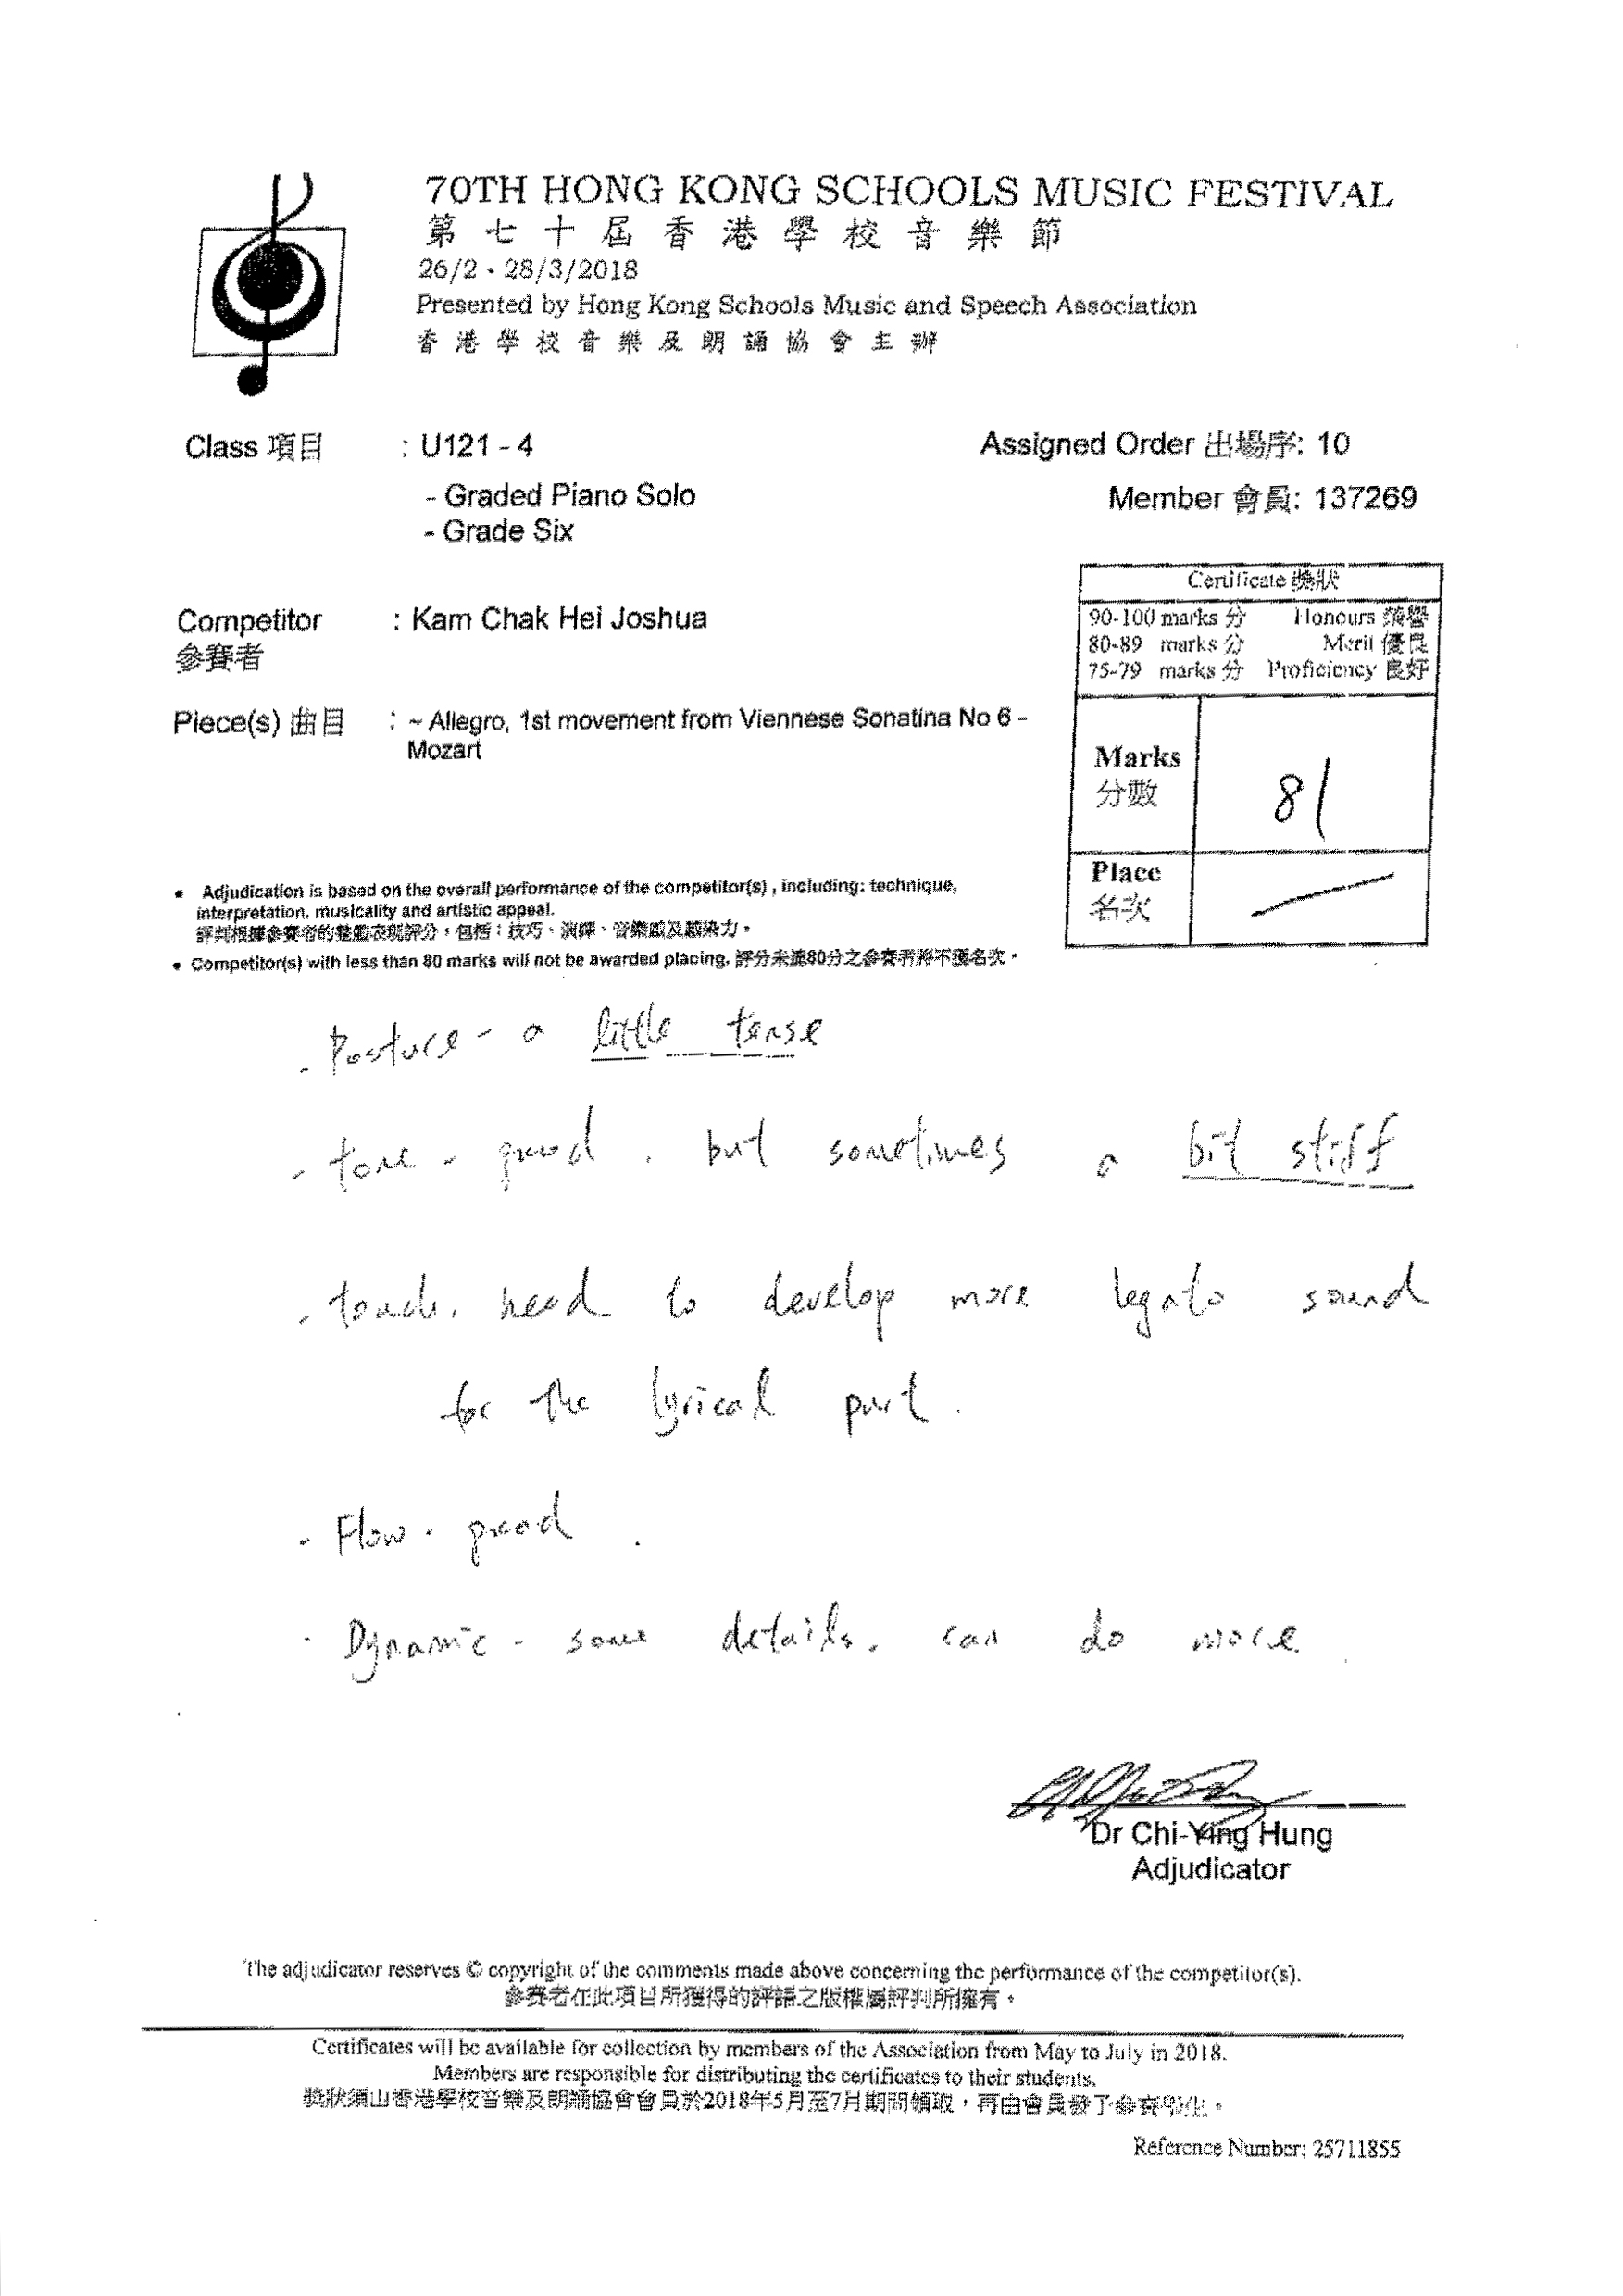 70TH HONG KONG SCHOOLS MUSIC FESTIVAL
第七十屆香港學校音樂節
26/2 - 28/3/2018
Presented by Hong Kong Schools Music and Speech Association
香港學校音樂及朗誦協會主辦
Class 項目 : U121 - 4
Assigned Order 出場序: 10
- Graded Piano Solo
Member 會員: 137269
- Grade Six
Certificate 獎狀
90-100 marks 分 Honours 榮譽
80-89 marks 分 Merit 優良
75-79 marks 分 Proficiency 良好
Competitor : Kam Chak Hei Joshua
參賽者
Piece(s) 曲目 : ~ Allegro, 1st movement from Viennese Sonatina No 6 -
Mozart
Marks
分數
81
Place
名次
• Adjudication is based on the overall performance of the competitor(s) , including: technique,
interpretation, musicality and artistic appeal.
評判根據參賽者的整體表現評分，包括：技巧、演繹、音樂感及感染力。
• Competitor(s) with less than 80 marks will not be awarded placing. 評分未達80分之參賽者將不獲名次。
- Posture - a little tense
- tone - good . but sometimes a bit stiff
- touch. need to develop more legato sound
for the lyrical part .
- Flow - good .
- Dynamic - some details. can do more
Dr Chi-Ying Hung
Adjudicator
The adjudicator reserves © copyright of the comments made above concerning the performance of the competitor(s).
參賽者在此項目所獲得的評語之版權屬評判所擁有。
Certificates will be available for collection by members of the Association from May to July in 2018.
Members are responsible for distributing the certificates to their students.
獎狀須由香港學校音樂及朗誦協會會員於2018年5月至7月期間領取，再由會員發予參賽學生。
Reference Number: 25711855